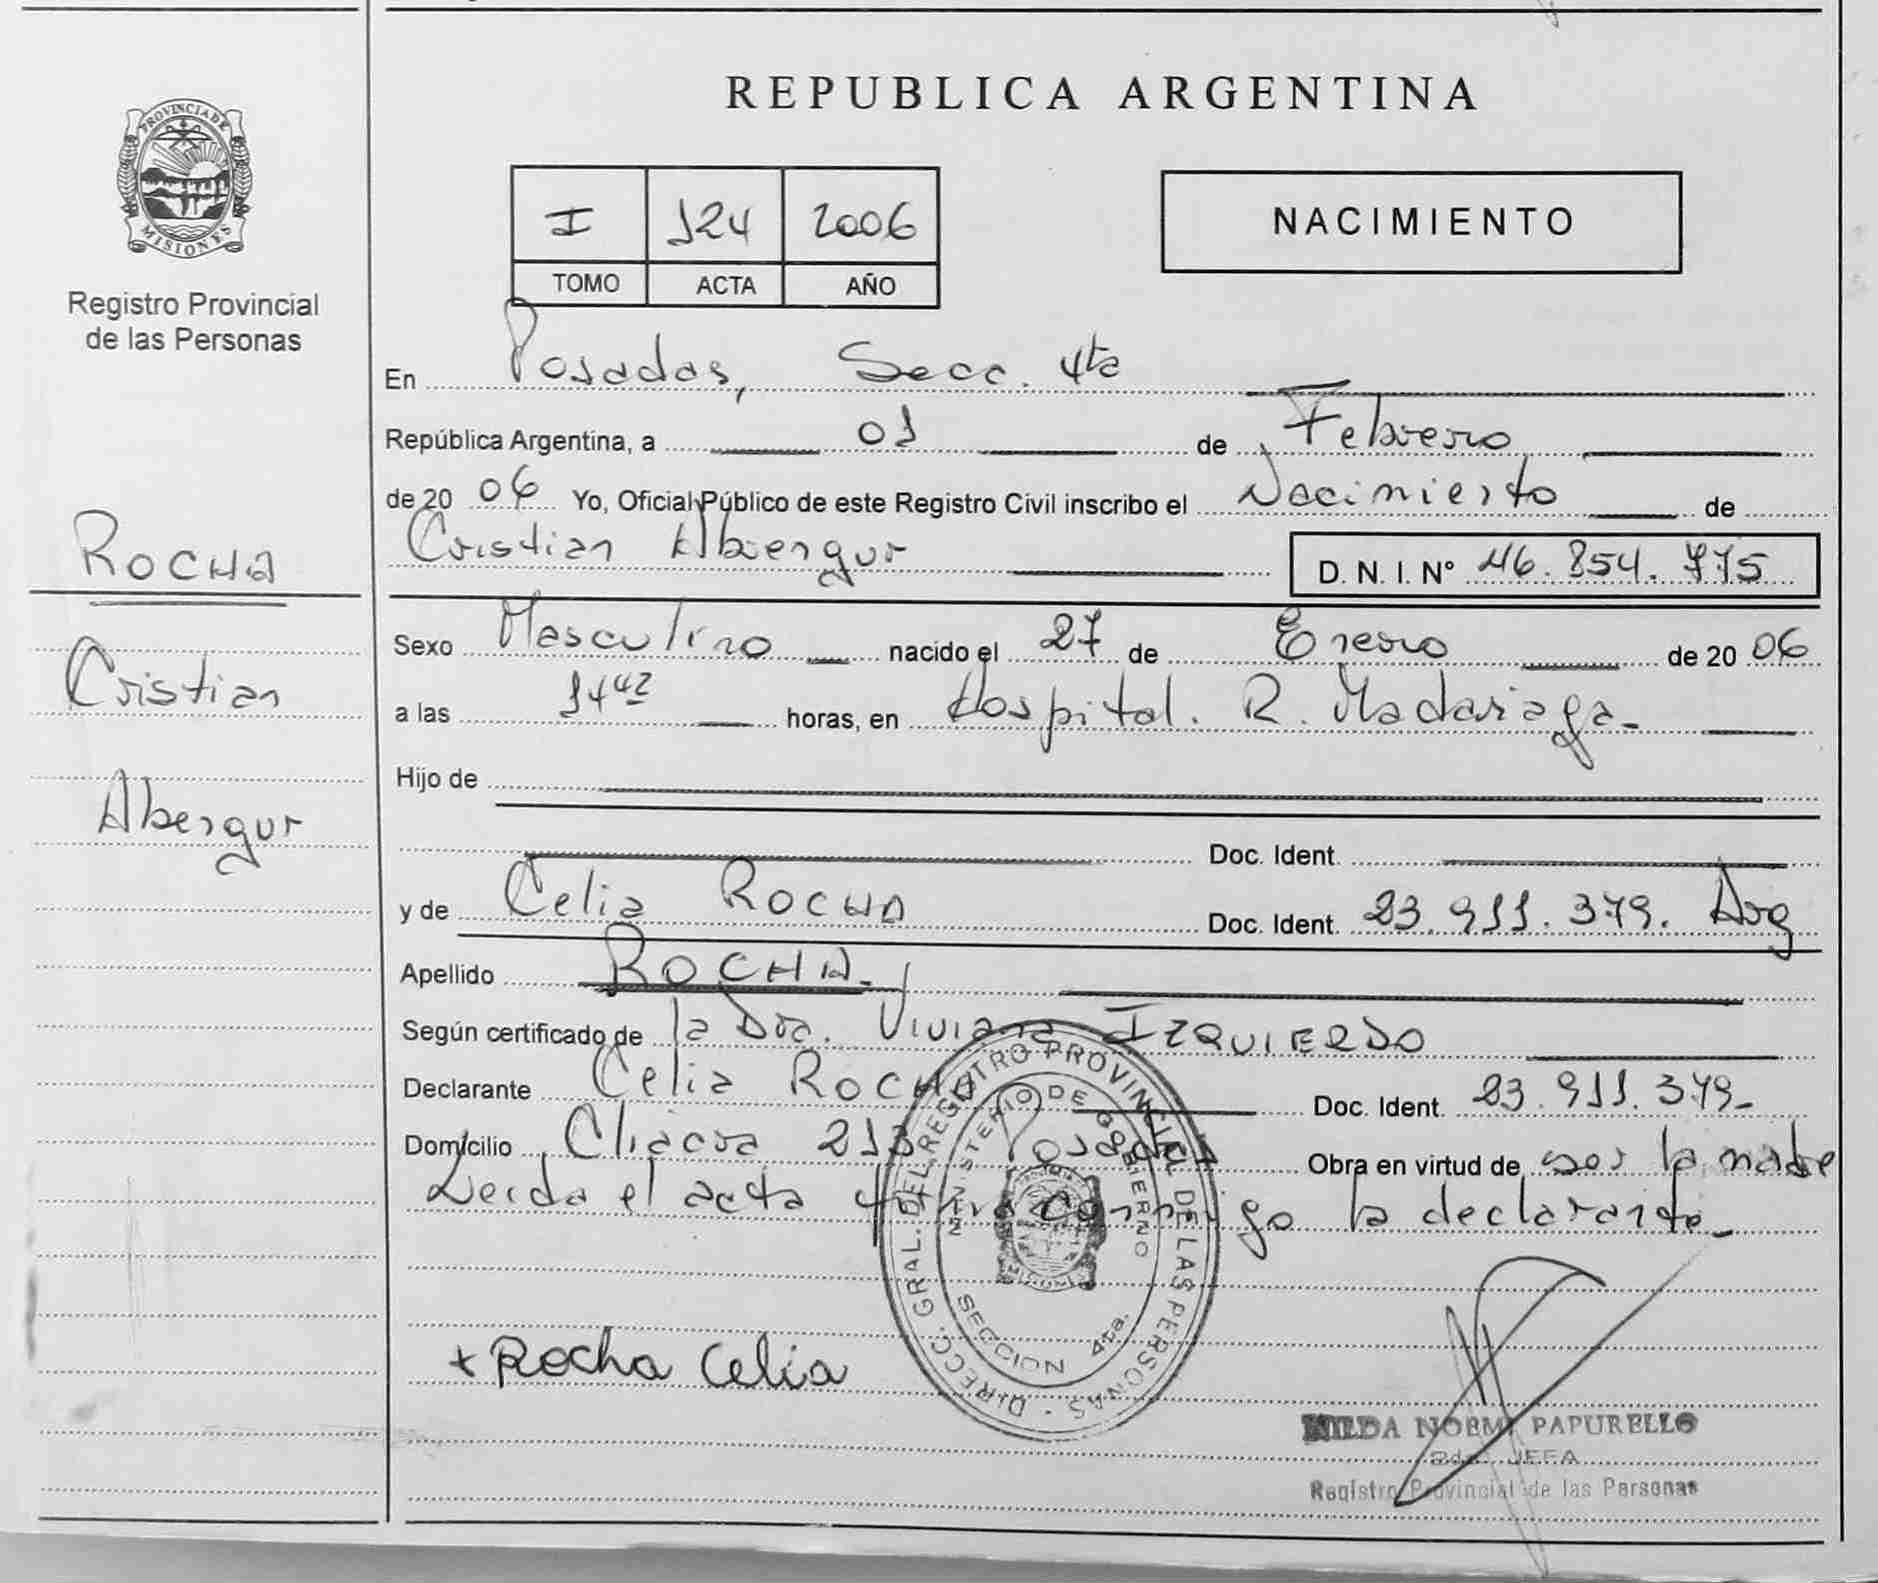 PROVINCIA DE
MISIONES
Registro Provincial
de las Personas
ROCHA
Cristian
Abengur
REPUBLICA ARGENTINA
I 124 2006
TOMO ACTA AÑO
NACIMIENTO
En Posadas, Secc. 4ta
República Argentina, a 01 de Febrero
de 2006 Yo, Oficial Público de este Registro Civil inscribo el Nacimiento de
Cristian Abengur D. N. I. Nº 46.854.775
Sexo Masculino nacido el 27 de Enero de 2006
a las 14 42 horas, en Hospital. R. Madariaga-
Hijo de
Doc. Ident.
y de Celia ROCHA Doc. Ident. 23.911.379. Arg
Apellido ROCHA-
Según certificado de la Dra. Viviana IZQUIERDO
Declarante Celia ROCHA Doc. Ident. 23.911.379-
Domicilio 213 Posadas Obra en virtud de ser la madre
Leida el acta conmigo la declarante-
DIRECC. GRAL. DEL REGISTRO PROVINCIAL DE LAS PERSONAS
MINISTERIO DE GOBIERNO
SECCION 4ta.
+ Rocha Celia
HILDA NOEMI PAPURELLO
2da. JEFA
Registro Provincial de las Personas